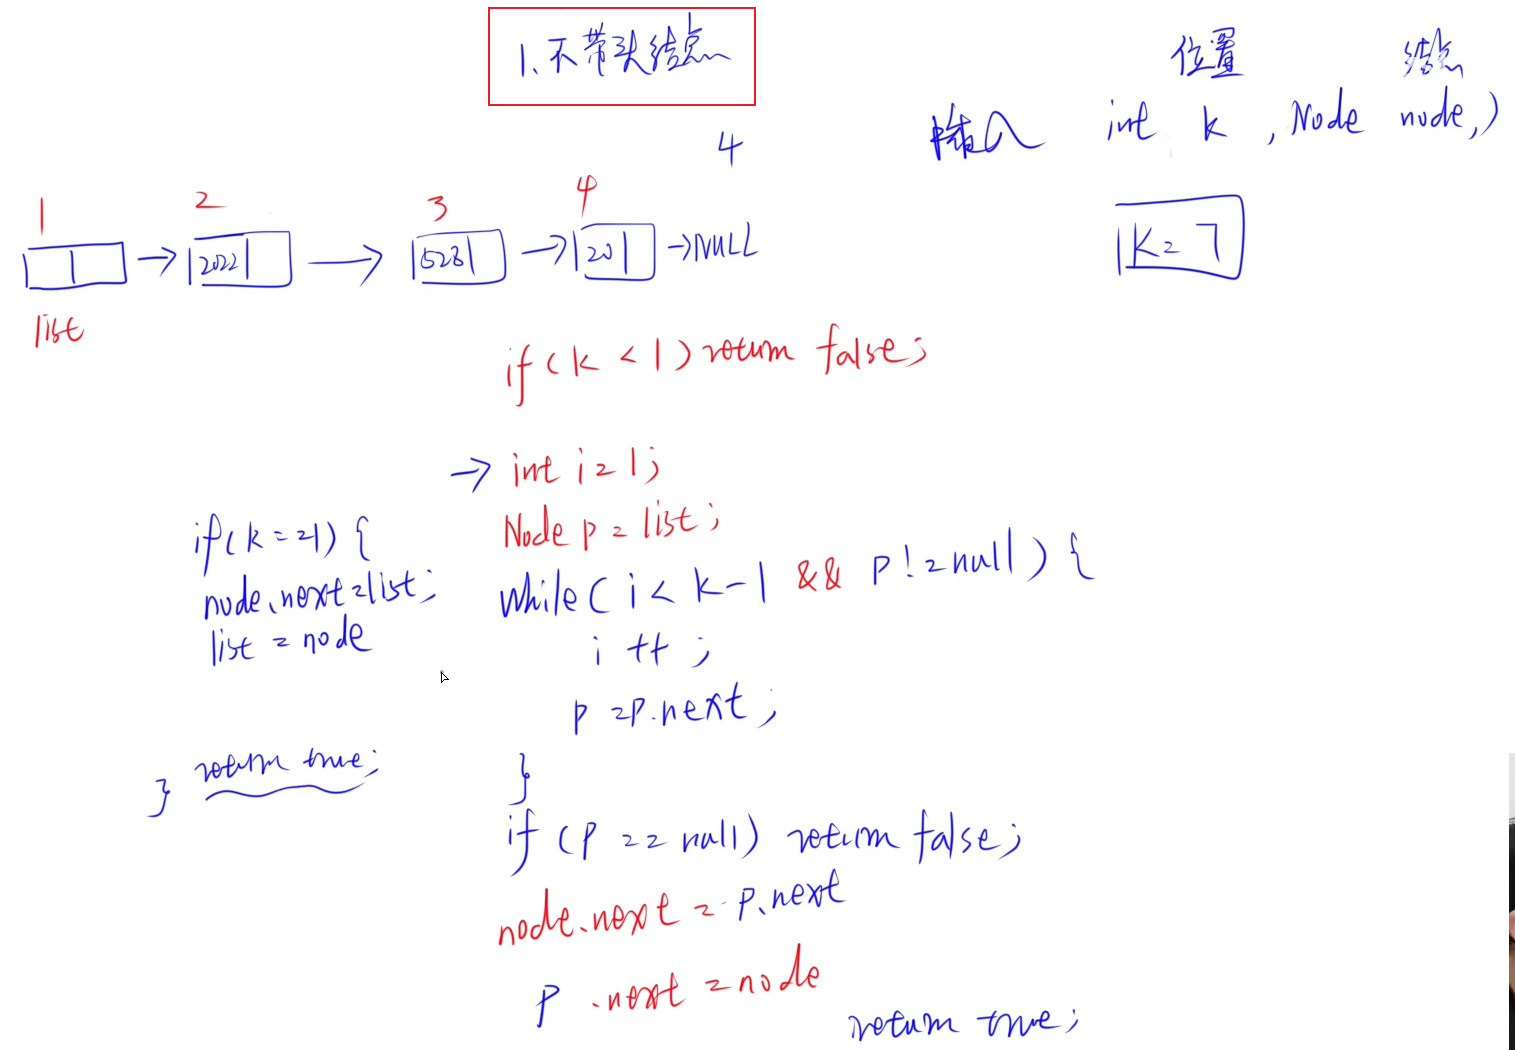 1、不带头结点
位置 结点
插入 int k , Node node,)
4
1 2 3 4
2022 528 20 →NULL
K=7
list
if(k<1)return false;
→ int i=1;
Node p=list;
while(i<k-1 && p!=null){
i++;
p=p.next;
}
if(p==null) return false;
node.next=p.next
p.next=node
return true;
if(k==1){
node.next=list;
list=node
return true;
}